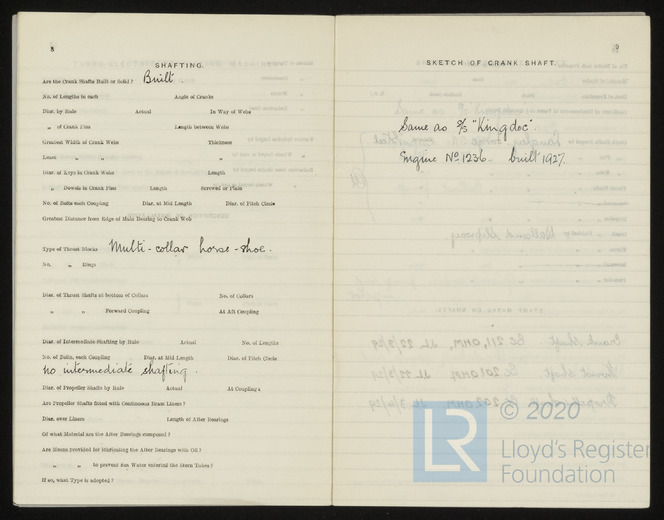 8
SHAFTING.
Are the Crank Shafts Built or Solid? Built.
No. of Lengths in each Angle of Cranks
Diar. by Rule Actual In Way of Webs
„ of Crank Pins Length between Webs
Greatest Width of Crank Webs Thickness
Least „ „ „
Diar. of Keys in Crank Webs Length
„ Dowels in Crank Pins Length Screwed or Plain
No. of Bolts each Coupling Diar. at Mid Length Diar. of Pitch Circle
Greatest Distance from Edge of Main Bearing to Crank Web
Type of Thrust Blocks Multi-collar horse-shoe.
No. „ Rings
Diar. of Thrust Shafts at bottom of Collars No. of Collars
„ „ Forward Coupling At Aft Coupling
Diar. of Intermediate Shafting by Rule Actual No. of Lengths
No. of Bolts, each Coupling Diar. at Mid Length Diar. of Pitch Circle
no intermediate shafting.
Diar. of Propeller Shafts by Rule Actual At Couplings
Are Propeller Shafts fitted with Continuous Brass Liners?
Diar. over Liners Length of After Bearings
Of what Material are the After Bearings composed?
Are Means provided for lubricating the After Bearings with Oil?
„ „ to prevent Sea Water entering the Stern Tubes?
If so, what Type is adopted?
9
SKETCH OF CRANK SHAFT.
Same as S/S "Kingdoc".
Engine No. 1236. built 1927.
© 2020
LR
Lloyd's Register
Foundation